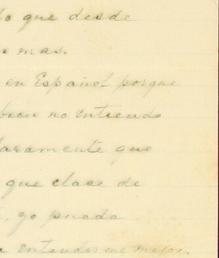 lo que desde
mas.
en Español porque
bien no entiendo
claramente que
que clase de
yo pueda
entenderme mejor.